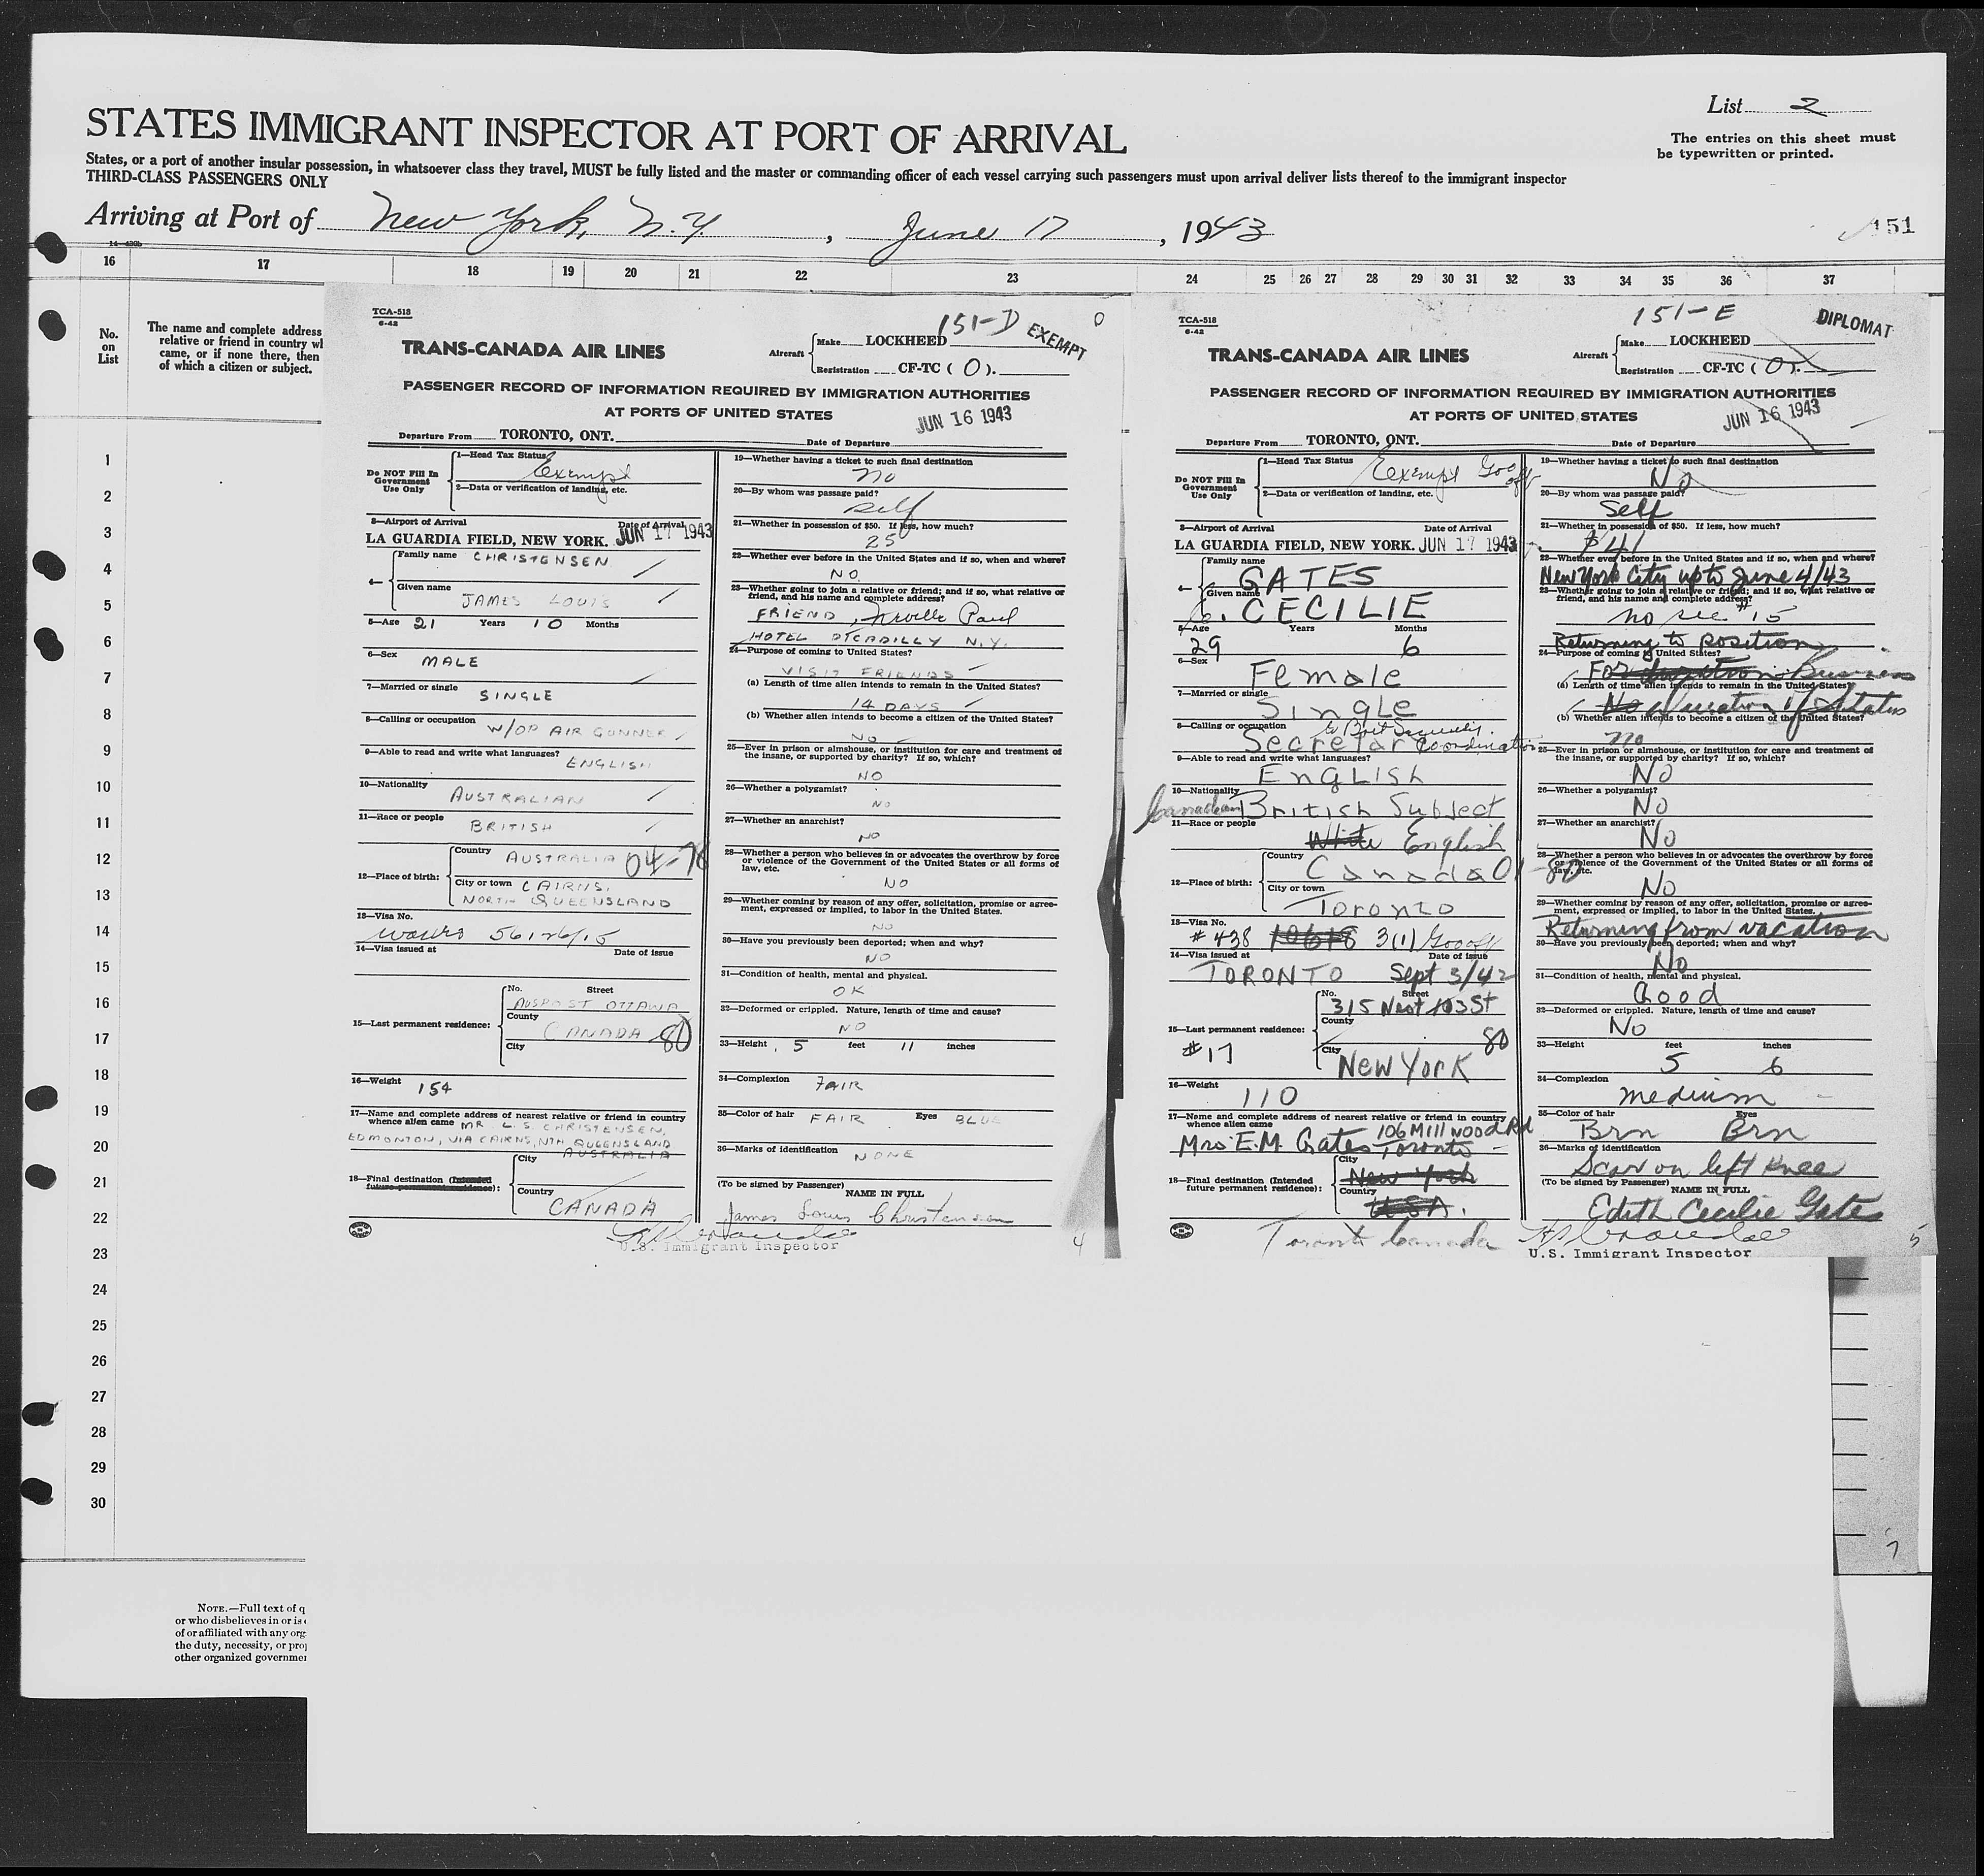 List 2
STATES IMMIGRANT INSPECTOR AT PORT OF ARRIVAL
The entries on this sheet must
be typewritten or printed.
States, or a port of another insular possession, in whatsoever class they travel, MUST be fully listed and the master or commanding officer of each vessel carrying such passengers must upon arrival deliver lists thereof to the immigrant inspector
THIRD-CLASS PASSENGERS ONLY
Arriving at Port of New York, N.Y. , June 17 , 1943
151
16 17 18 19 20 21 22 23 24 25 26 27 28 29 30 31 32 33 34 35 36 37
No.
on
List
The name and complete address
relative or friend in country wh
came, or if none there, then
of which a citizen or subject.
1
2
3
4
5
6
7
8
9
10
11
12
13
14
15
16
17
18
19
20
21
22
23
24
25
26
27
28
29
30
TCA-518
6-42
151-D EXEMPT
TRANS-CANADA AIR LINES
Aircraft Make LOCKHEED
Registration CF-TC ( O ).
PASSENGER RECORD OF INFORMATION REQUIRED BY IMMIGRATION AUTHORITIES
AT PORTS OF UNITED STATES
JUN 16 1943
Departure From TORONTO, ONT. Date of Departure
Do NOT Fill In
Government
Use Only
1—Head Tax Status Exempt
2—Data or verification of landing, etc.
3—Airport of Arrival Date of Arrival
LA GUARDIA FIELD, NEW YORK. JUN 17 1943
4— Family name CHRISTENSEN
Given name JAMES LOUIS
5—Age 21 Years 10 Months
6—Sex MALE
7—Married or single SINGLE
8—Calling or occupation W/OP AIR GUNNER
9—Able to read and write what languages? ENGLISH
10—Nationality AUSTRALIAN
11—Race or people BRITISH
12—Place of birth: Country AUSTRALIA 04-
City or town CAIRNS,
NORTH QUEENSLAND
13—Visa No.
14—Visa issued at Date of issue
15—Last permanent residence: No. Street
AUSPOST OTTAWA
County
CANADA 80
City
16—Weight 154
17—Name and complete address of nearest relative or friend in country
whence alien came MR. L. S. CHRISTENSEN,
EDMONTON, VIA CAIRNS, NTH QUEENSLAND
AUSTRALIA
18—Final destination (Intended
future permanent residence): City
Country
CANADA
19—Whether having a ticket to such final destination
no
20—By whom was passage paid?
self
21—Whether in possession of $50. If less, how much?
25
22—Whether ever before in the United States and if so, when and where?
NO.
23—Whether going to join a relative or friend; and if so, what relative or
friend, and his name and complete address?
FRIEND, Neville Paul
HOTEL PICADILLY N.Y.
24—Purpose of coming to United States?
VISIT FRIENDS
(a) Length of time alien intends to remain in the United States?
14 DAYS
(b) Whether alien intends to become a citizen of the United States?
NO
25—Ever in prison or almshouse, or institution for care and treatment of
the insane, or supported by charity? If so, which?
NO
26—Whether a polygamist?
NO
27—Whether an anarchist?
NO
28—Whether a person who believes in or advocates the overthrow by force
or violence of the Government of the United States or all forms of
law, etc.
NO
29—Whether coming by reason of any offer, solicitation, promise or agree-
ment, expressed or implied, to labor in the United States.
NO
30—Have you previously been deported; when and why?
NO
31—Condition of health, mental and physical.
OK
32—Deformed or crippled. Nature, length of time and cause?
NO
33—Height 5 feet 11 inches
34—Complexion FAIR
35—Color of hair FAIR Eyes BLUE
36—Marks of identification NONE
(To be signed by Passenger)
NAME IN FULL
James Louis Christensen
U.S. Immigrant Inspector
4
TCA-518
6-42
151-E
DIPLOMAT
TRANS-CANADA AIR LINES
Aircraft Make LOCKHEED
Registration CF-TC ( O ).
PASSENGER RECORD OF INFORMATION REQUIRED BY IMMIGRATION AUTHORITIES
AT PORTS OF UNITED STATES
JUN 16 1943
Departure From TORONTO, ONT. Date of Departure
Do NOT Fill In
Government
Use Only
1—Head Tax Status Exempt
2—Data or verification of landing, etc.
3—Airport of Arrival Date of Arrival
LA GUARDIA FIELD, NEW YORK. JUN 17 1943
4— Family name GATES
Given name E. CECILIE
5—Age 29 Years 6 Months
6—Sex Female
7—Married or single Single
8—Calling or occupation
Secretar Coordination
9—Able to read and write what languages?
English
10—Nationality Canadian British Subject
11—Race or people White English
12—Place of birth: Country Canada 01-80
City or town
Toronto
13—Visa No. # 438 10618 3(1)
14—Visa issued at Date of issue
TORONTO Sept 3/42
15—Last permanent residence: No. Street
315 West 103 St
County
# 17 80
City New York
16—Weight 110
17—Name and complete address of nearest relative or friend in country
whence alien came 106 Millwood Rd
Mrs E.M. Gates Toronto
18—Final destination (Intended
future permanent residence): City New York
Country U.S.A.
Toronto Canada
19—Whether having a ticket to such final destination
No
20—By whom was passage paid?
Self
21—Whether in possession of $50. If less, how much?
$41
22—Whether ever before in the United States and if so, when and where?
New York City up to June 4/43
23—Whether going to join a relative or friend; and if so, what relative or
friend, and his name and complete address?
no see #15
Returning to position
24—Purpose of coming to United States?
For Business
(a) Length of time alien intends to remain in the United States?
No Duration of Status
(b) Whether alien intends to become a citizen of the United States?
no
25—Ever in prison or almshouse, or institution for care and treatment of
the insane, or supported by charity? If so, which?
No
26—Whether a polygamist?
No
27—Whether an anarchist?
No
28—Whether a person who believes in or advocates the overthrow by force
or violence of the Government of the United States or all forms of
law, etc.
No
29—Whether coming by reason of any offer, solicitation, promise or agree-
ment, expressed or implied, to labor in the United States.
Returning from vacation
30—Have you previously been deported; when and why?
No
31—Condition of health, mental and physical.
Good
32—Deformed or crippled. Nature, length of time and cause?
No
33—Height feet inches
5 6
34—Complexion
medium
35—Color of hair Eyes
Brn Brn
36—Marks of identification
Scar on left knee
(To be signed by Passenger)
NAME IN FULL
Edith Cecilie Gates
U.S. Immigrant Inspector
5
7
NOTE.—Full text of q
or who disbelieves in or is
of or affiliated with any org
the duty, necessity, or prop
other organized governmen